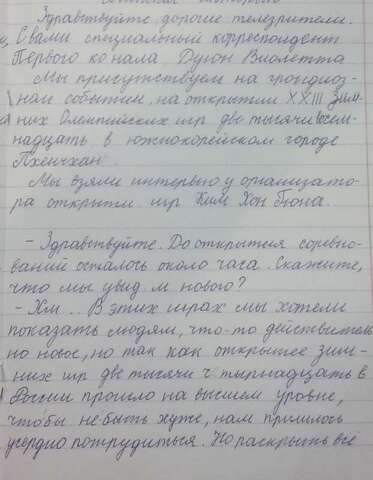 Здравствуйте, дорогие телезрители.
С вами специальный корреспондент
Первого канала, Дугон Виолетта
Мы присутствуем на грандиоз-
ном событии, на открытии XXIII Зим-
них Олимпийских игр две тысячи восем-
надцать в южнокорейском городе
Пхенчхан.
Мы взяли интервью у организато-
ра открытия игр Ким Хон Гюна.
- Здравствуйте. До открытия соревно-
ваний осталось около часа. Скажите,
что мы увидим нового?
- Хм... В этих играх мы хотели
показать людям, что-то действитель
но новое, но так как открытие зим-
них игр две тысячи четырнадцать в
России прошло на высшем уровне,
чтобы не быть хуже, нам пришлось
усердно потрудиться. Но раскрыть всё